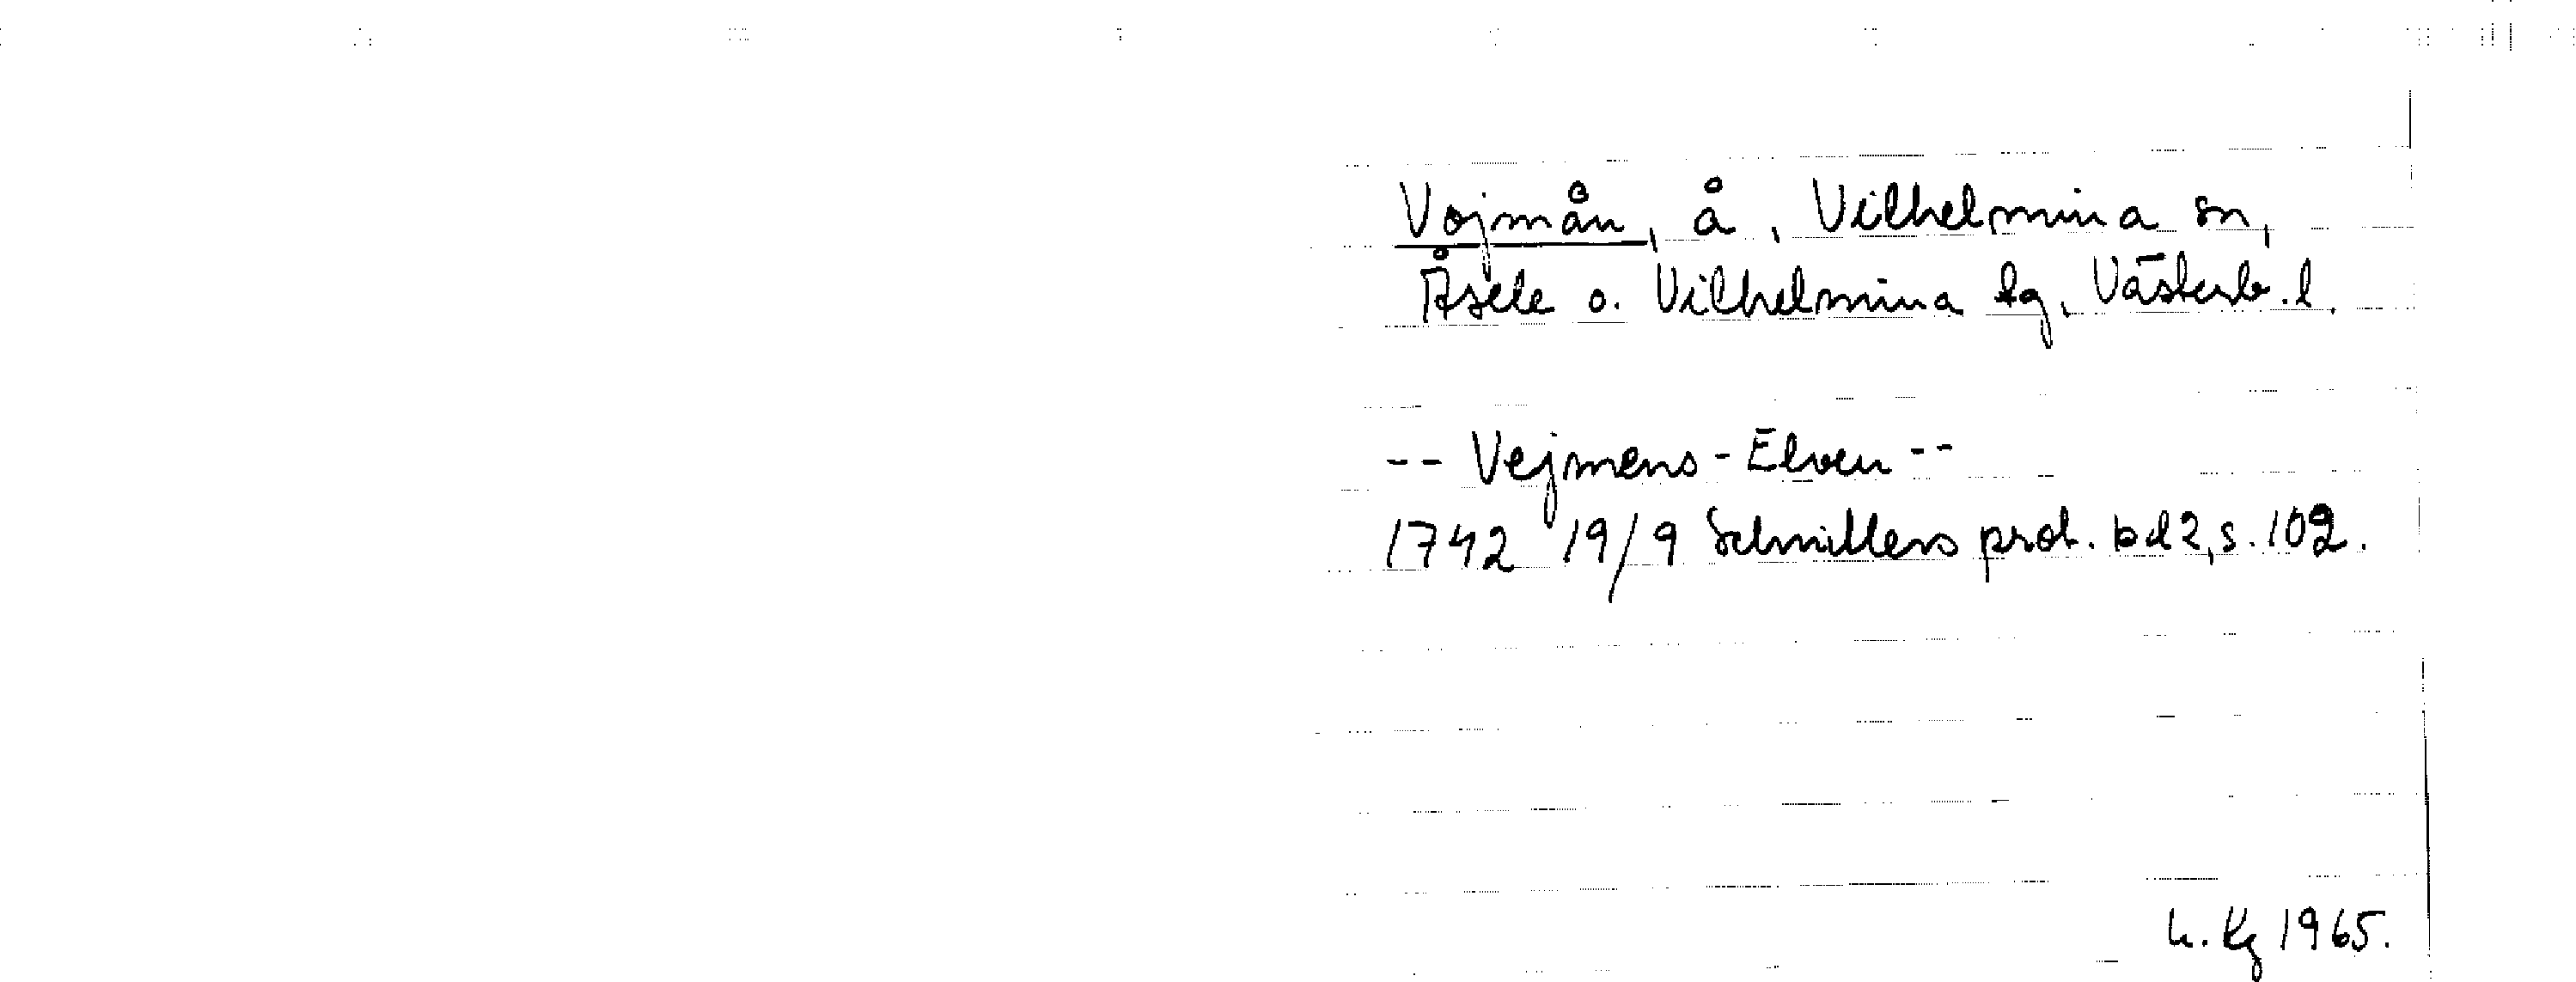 Vojmån, å, Vilhelmina sn,
Åsele o. Vilhelmina tg, Västerb. l.
-- Vejmens-Elven --
1742 19/9 Schnitlers prot. bd 2, s. 102.
h. Kg 1965.